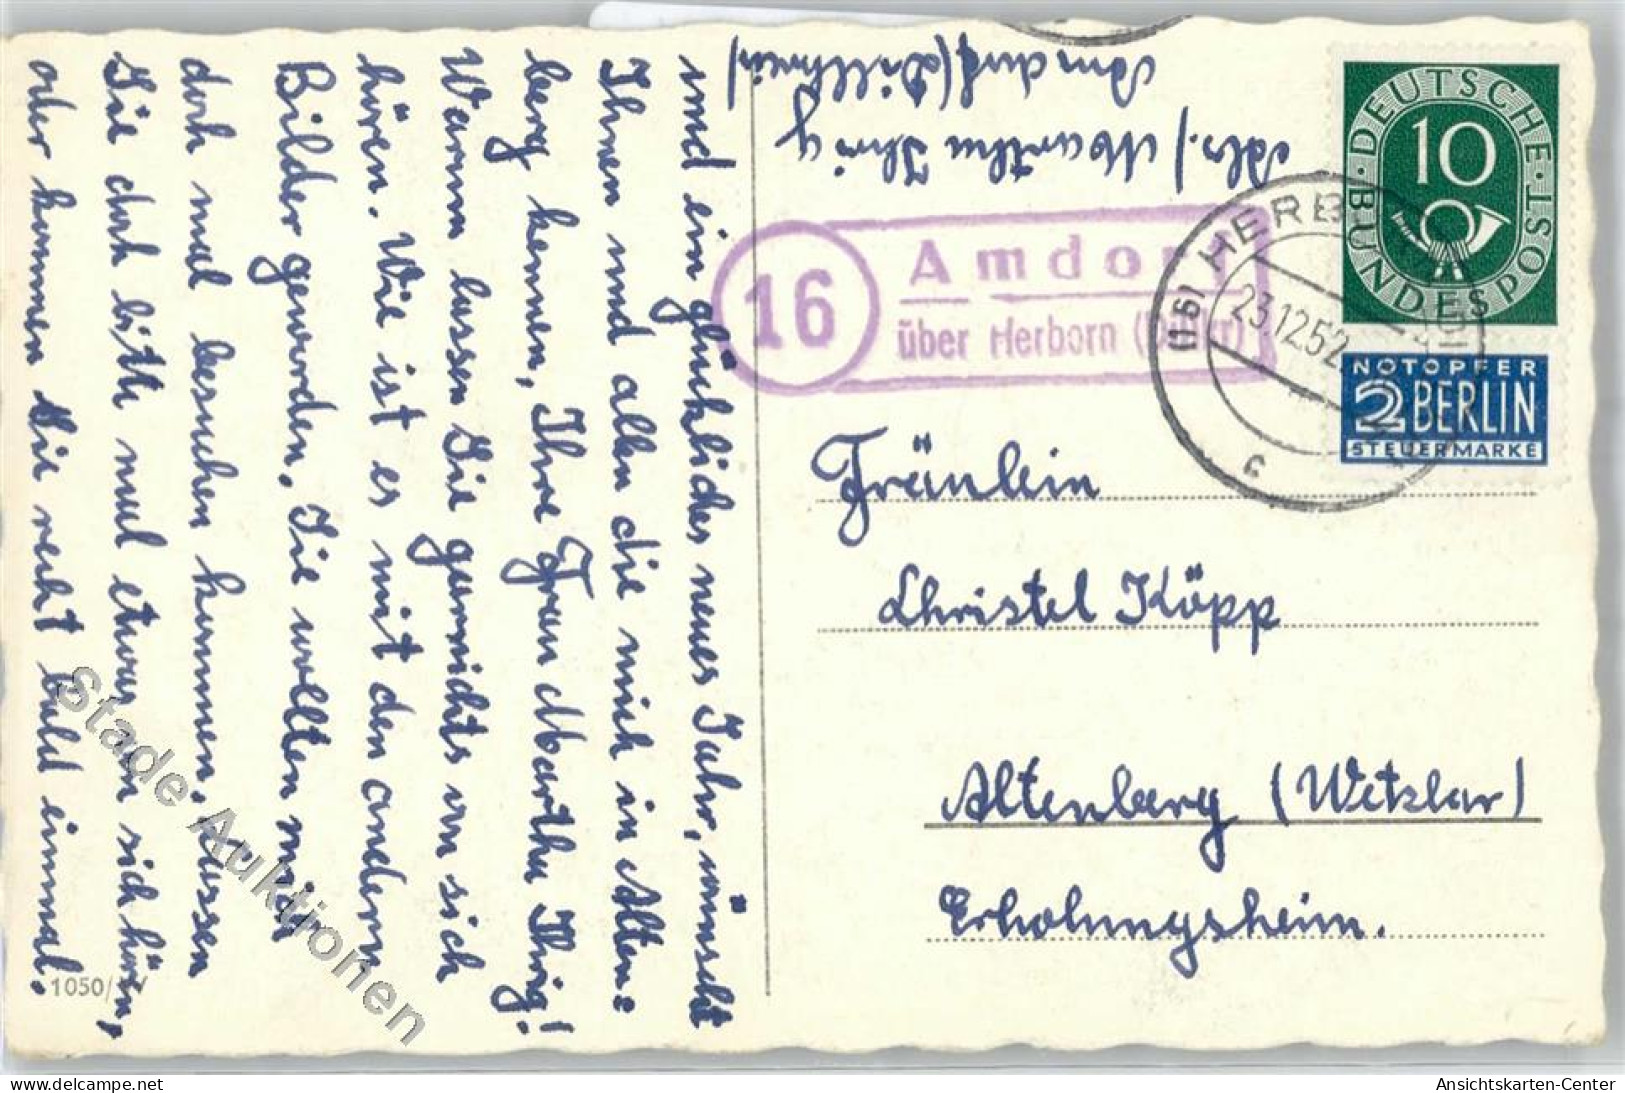 und ein glückliches neues Jahr, wünscht
Ihnen und allen die mich in Alten=
berg kennen, Ihre Frau Martha Ihrig!
Warum lassen Sie garnichts von sich
hören. Wie ist es mit den andern
Bilder geworden. Sie wollten mich
doch mal besuchen kommen. Lassen
Sie doch bitte mal etwas von sich hören,
oder kommen Sie recht bald einmal.
1050/
Abs./ Martha Ihrig
Amdorf (Dillkreis)
16
Amdorf
über Herborn (Dillkr)
(16) HERBORN
23.12.52
c
DEUTSCHE BUNDESPOST
10
NOTOPFER
2 BERLIN
STEUERMARKE
Fräulein
Christel Köpp
Altenberg (Wetzlar)
Erholungsheim.
Stade Auktionen
www.delcampe.net
Ansichtskarten-Center